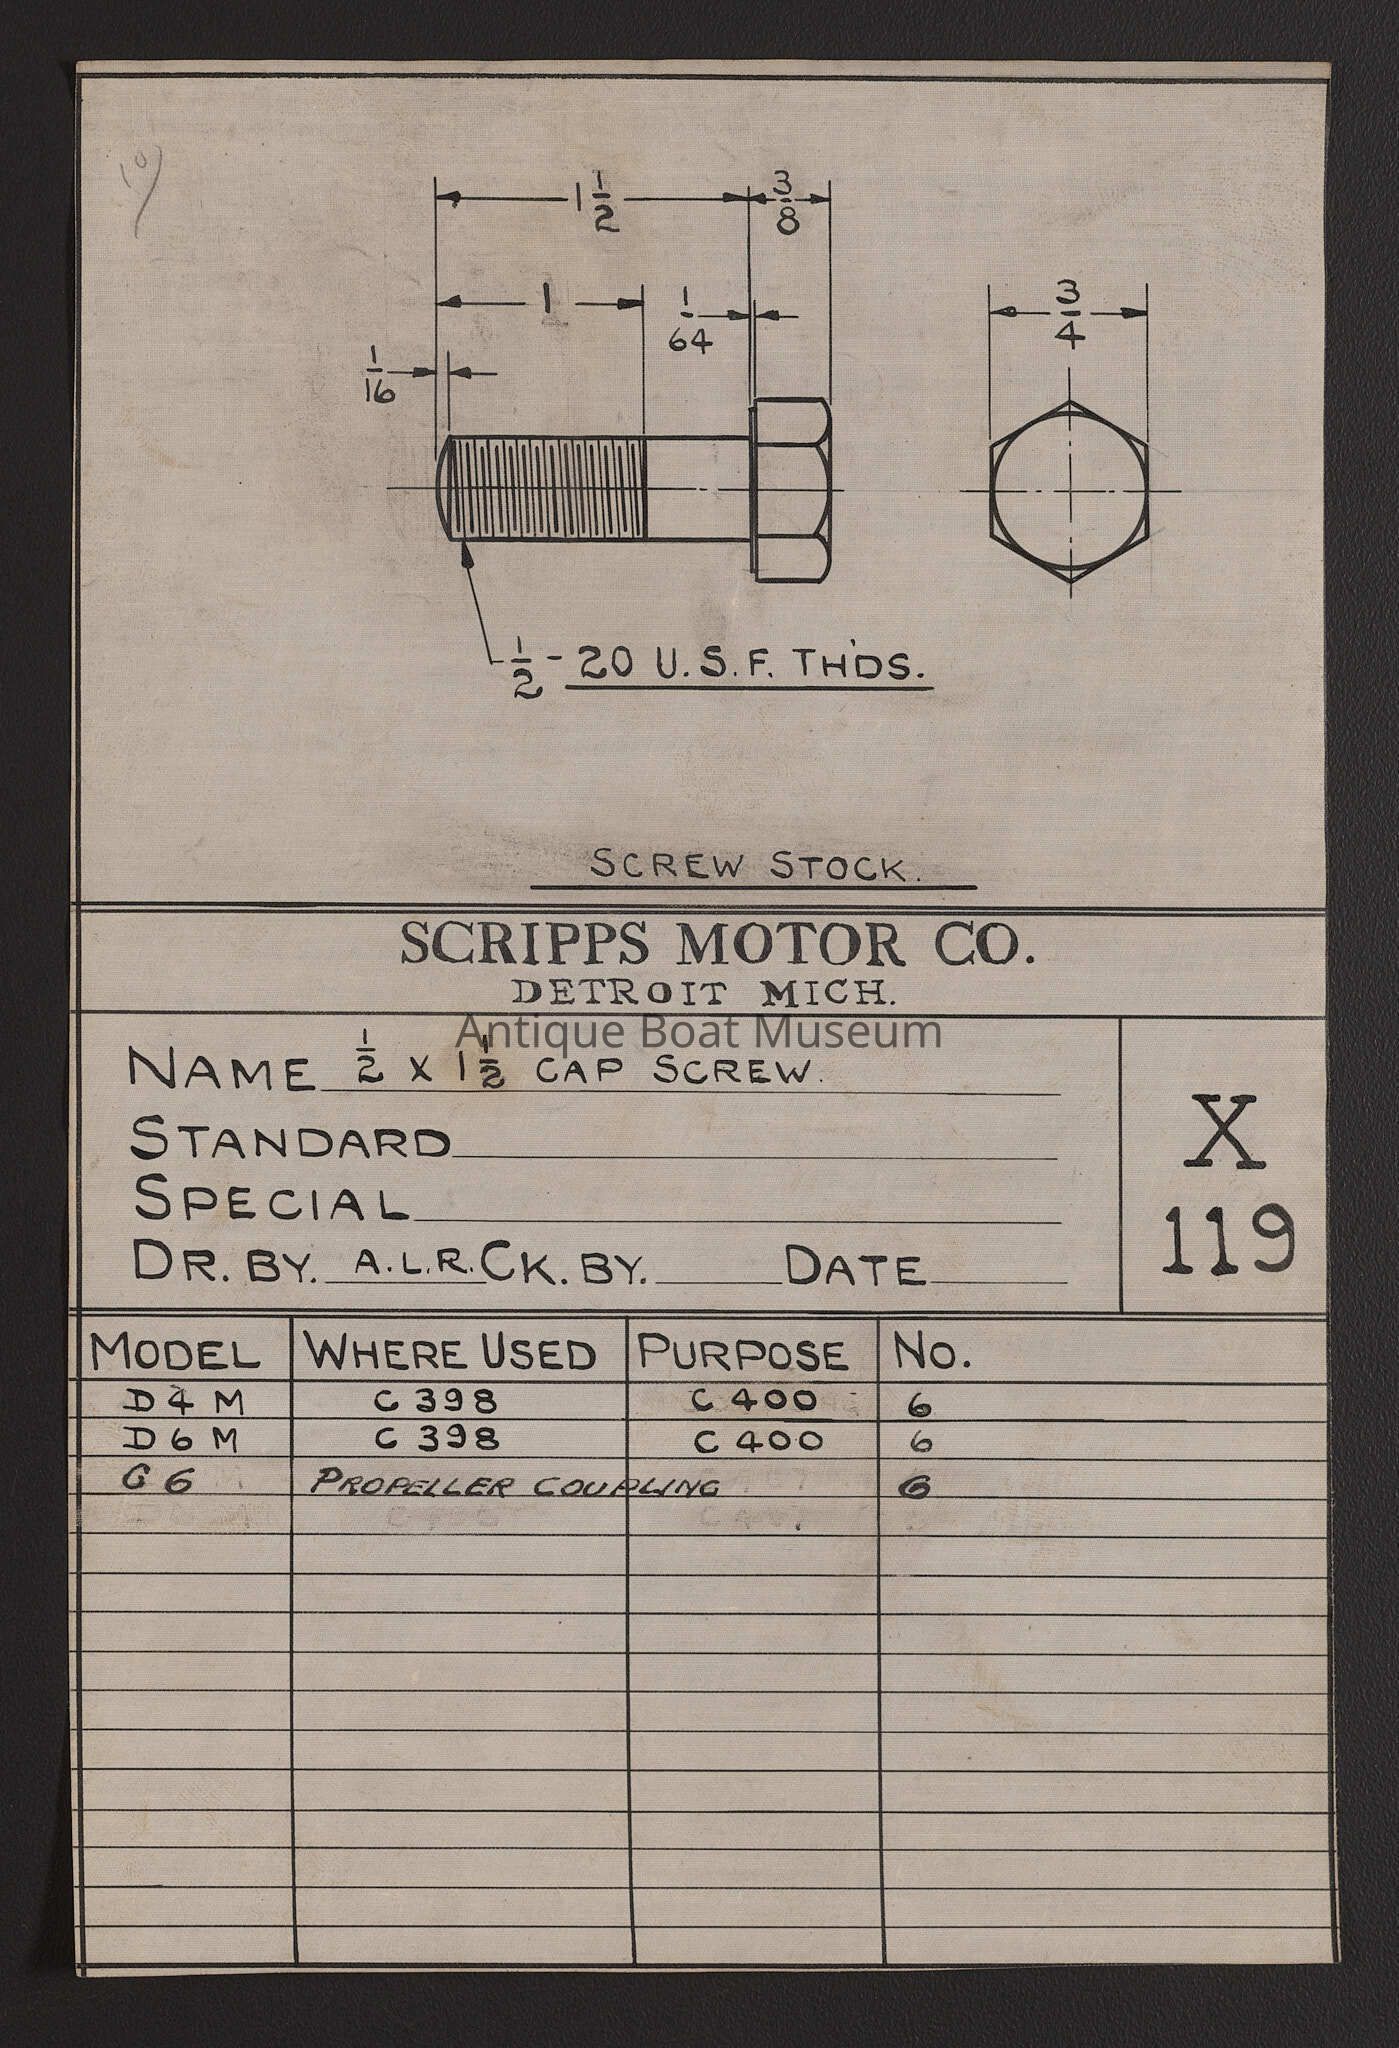 10
1 1/2
3/8
1
1/64
3/4
1/16
1/2 - 20 U.S.F. TH'DS.
SCREW STOCK.
SCRIPPS MOTOR CO.
DETROIT MICH.
Antique Boat Museum
NAME 1/2 X 1 1/2 CAP SCREW.
STANDARD
SPECIAL
DR. BY. A.L.R. CK. BY. DATE
X
119
MODEL WHERE USED PURPOSE NO.
D4M C398 C400 6
D6M C398 C400 6
G6 PROPELLER COUPLING 6